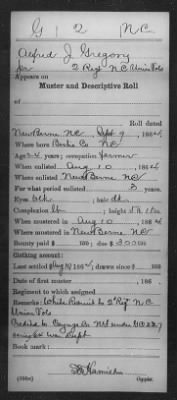 G | 2 | N C
Alfred J. Gregory
2 Regt N. C. Union Vols
Appears on
Muster and Descriptive Roll
Roll dated
New Berne NC Sept 9, 1864
Where born Co NC
Age 24 years; occupation Farmer
When enlisted Aug 10, 1864
Where enlisted New Berne NC
For what period enlisted 3 years.
Eyes ; hair
Complexion ; height 5 ft. 11 in.
When mustered in Aug 10, 1864
Where mustered in New Berne NC
Bounty paid $ 100; due $ 300 100
Clothing account:
Last settled , 186 ; drawn since $ 100
Date of first muster , 186 .
Regiment to which assigned
Remarks: White Recruit to 2" Regt N C
Union Vols.
under G O 227
Dept
Book mark:
Copyist.